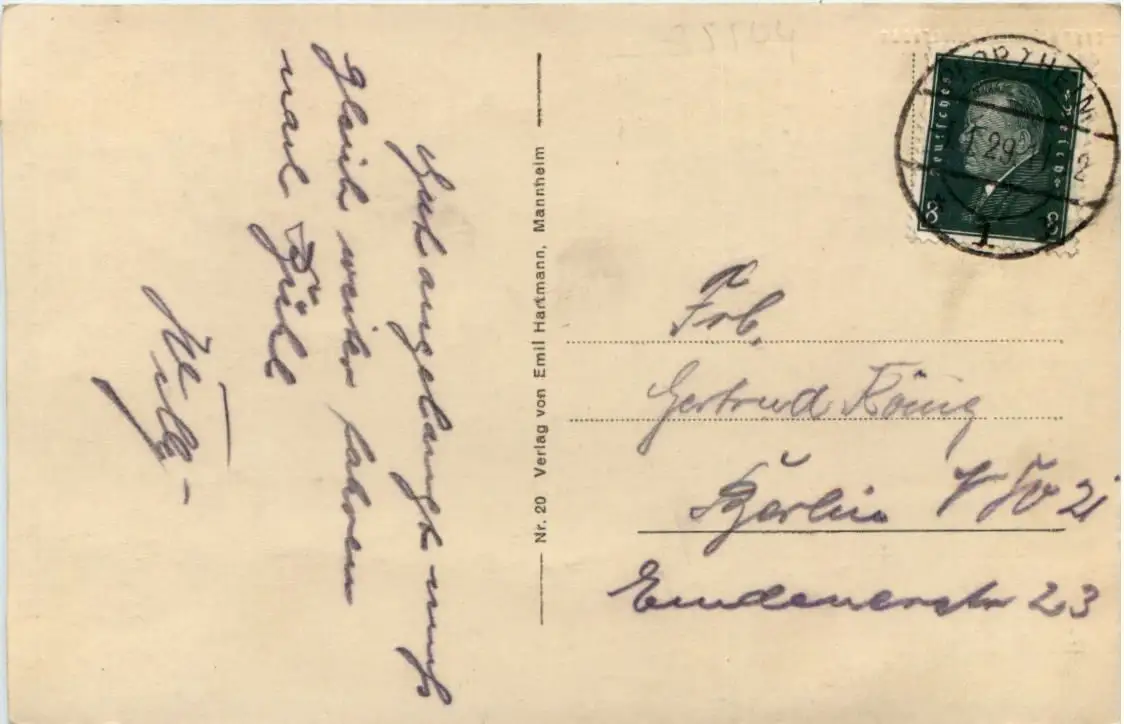 Gut angelangt muß
gleich weiter fahren
nach Bühl
Willy -
Nr. 20 Verlag von Emil Hartmann, Mannheim
PFORZHEIM
29
2
1.
Deutsches Reich
8 8
Frl.
Gertrud König
Berlin
Emdenerstr 23